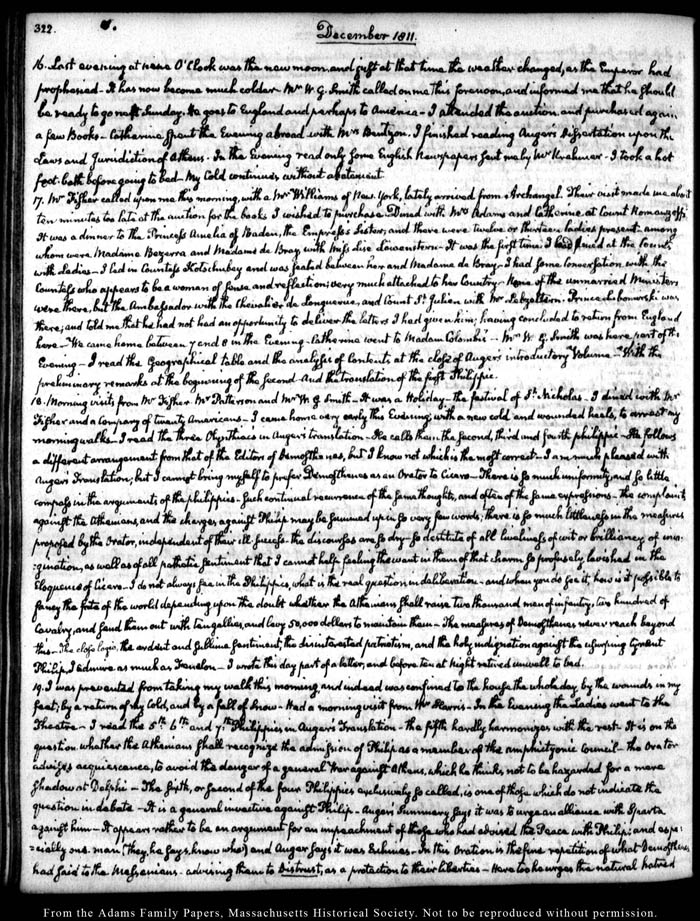 322.
December 1811.
16. Last evening at nine O'Clock was the new moon, and just at that time the weather changed, as the Emperor had
prophesied. It has now become much colder. Mr W. G. Smith called on me this forenoon, and informed me that he should
be ready to go next Sunday. He goes to England and perhaps to America. I attended the auction and purchased again
a few Books. Catharine spent the Evening abroad with Mrs Bentzon. I finished reading Auger's Dissertation upon the
Laws and Jurisdiction of Athens. In the Evening read only some English Newspapers sent me by Mr Krehmer. I took a hot
foot-bath before going to bed. My Cold continues without abatement.
17. Mr Fisher called upon me this morning, with a Mr Williams of New-York, lately arrived from Archangel. Their visit made me about
ten minutes too late at the auction for the books I wished to purchase. Dined with Mrs Adams and Catherine at Count Romanzoff's.
It was a dinner to the Princess Amelia of Baden, the Empress's Sister; and there were twelve or thirteen ladies present, among
whom were Madame Bezerra and Madame de Bray, with Miss Lise Lowenstern. It was the first time I had dined at the Count's
with Ladies. I led in Countess Kotschubey and was seated between her and Madame de Bray. I had some Conversation with the
Countess who appears to be a woman of sense and reflection; very much attached to her Country. None of the unmarried Ministers
were there, but the Ambassador with the Chevalier de Longuerue, and Count St. Julien with Mr Lebzeltern. Prince was
there; and told me that he had not had an opportunity to deliver the letters I had given him; having concluded to return from England
here. We came home between 7 and 8 in the Evening. Catherine went to Madam Colombi's. Mr W. G. Smith was here part of the
Evening. I read the Geographical table and the analysis of Contents at the close of Auger's introductory Volume. With the
preliminary remarks at the beginning of the second. And the translation of the first Philippic.
18. Morning visits from Mr Fisher Mr Patterson and Mr W. G. Smith. It was a Holiday. the festival of St. Nicholas. I dined with Mr
Fisher and a Company of twenty Americans. I came home very early this Evening, with a new cold and wounded heels, to arrest my
morning walks. I read the three Olynthiacs in Auger's translation. He calls them the second, third and fourth philippic. He follows
a different arrangement from that of the Editors of Demosthenes, but I know not which is the most correct. I am much pleased with
Auger's Translation; but I cannot bring myself to prefer Demosthenes as an Orator to Cicero. There is so much uniformity, and so little
compass in the arguments of the philippics. Such continual recurrence of the same thoughts, and often of the same expressions. the complaints
against the Athenians, and the charges against Philip may be summed up in so very few words; there is so much littleness in the measures
proposed by the Orator, independent of their ill success. the discourses are so dry, so destitute of all liveliness of wit or brilliancy of ima-
gination, as well as of all pathetic Sentiment that I cannot help feeling the want in them of that charm so profusely lavished in the
Eloquence of Cicero. I do not always see in the Philippics, what is the real question in deliberation. and when you do see it, how is it possible to
fancy the fate of the world depending upon the doubt whether the Athenians shall raise two thousand men of infantry, two hundred of
Cavalry, and send them out with ten gallies, and levy 50,000 dollars to maintain them. The measures of Demosthenes never reach beyond
this. The close logic, the ardent and sublime Sentiment, the disinterested patriotism, and the holy indignation against the usurping tyrant
Philip, I admire as much as Fenelon. I wrote this day part of a letter, and before ten at night retired unwell to bed.
19. I was prevented from taking my walk this morning, and indeed was confined to the house the whole day, by the wounds in my
feet; by a return of my Cold, and by a fall of snow. Had a morning visit from Mr Harris. In the Evening the Ladies went to the
Theatre. I read the 5th 6th and 7th Philippics in Auger's Translation. the fifth hardly harmonizes with the rest. It is on the
question whether the Athenians shall recognize the admission of Philip as a member of the amphictyonic Council. the Orator
advises acquiescence, to avoid the danger of a general War against Athens, which he thinks, not to be hazarded for a mere
Shadow at Delphi. The sixth, or second of the four Philippics exclusively so called, is one of those which do not indicate the
question in debate. It is a general invective against Philip. Auger's Summary says it was to urge an alliance with Sparta
against him. It appears rather to be an argument for an impeachment of those who had advised the Peace with Philip; and espe-
-cially one man (they, he says, know who) and Auger says it was Eschines. In this Oration is the fine repetition of what Demosthenes
had said to the Messenians. advising them to Distrust, as a protection to their liberties. Here too he urges the natural hatred
From the Adams Family Papers, Massachusetts Historical Society. Not to be reproduced without permission.